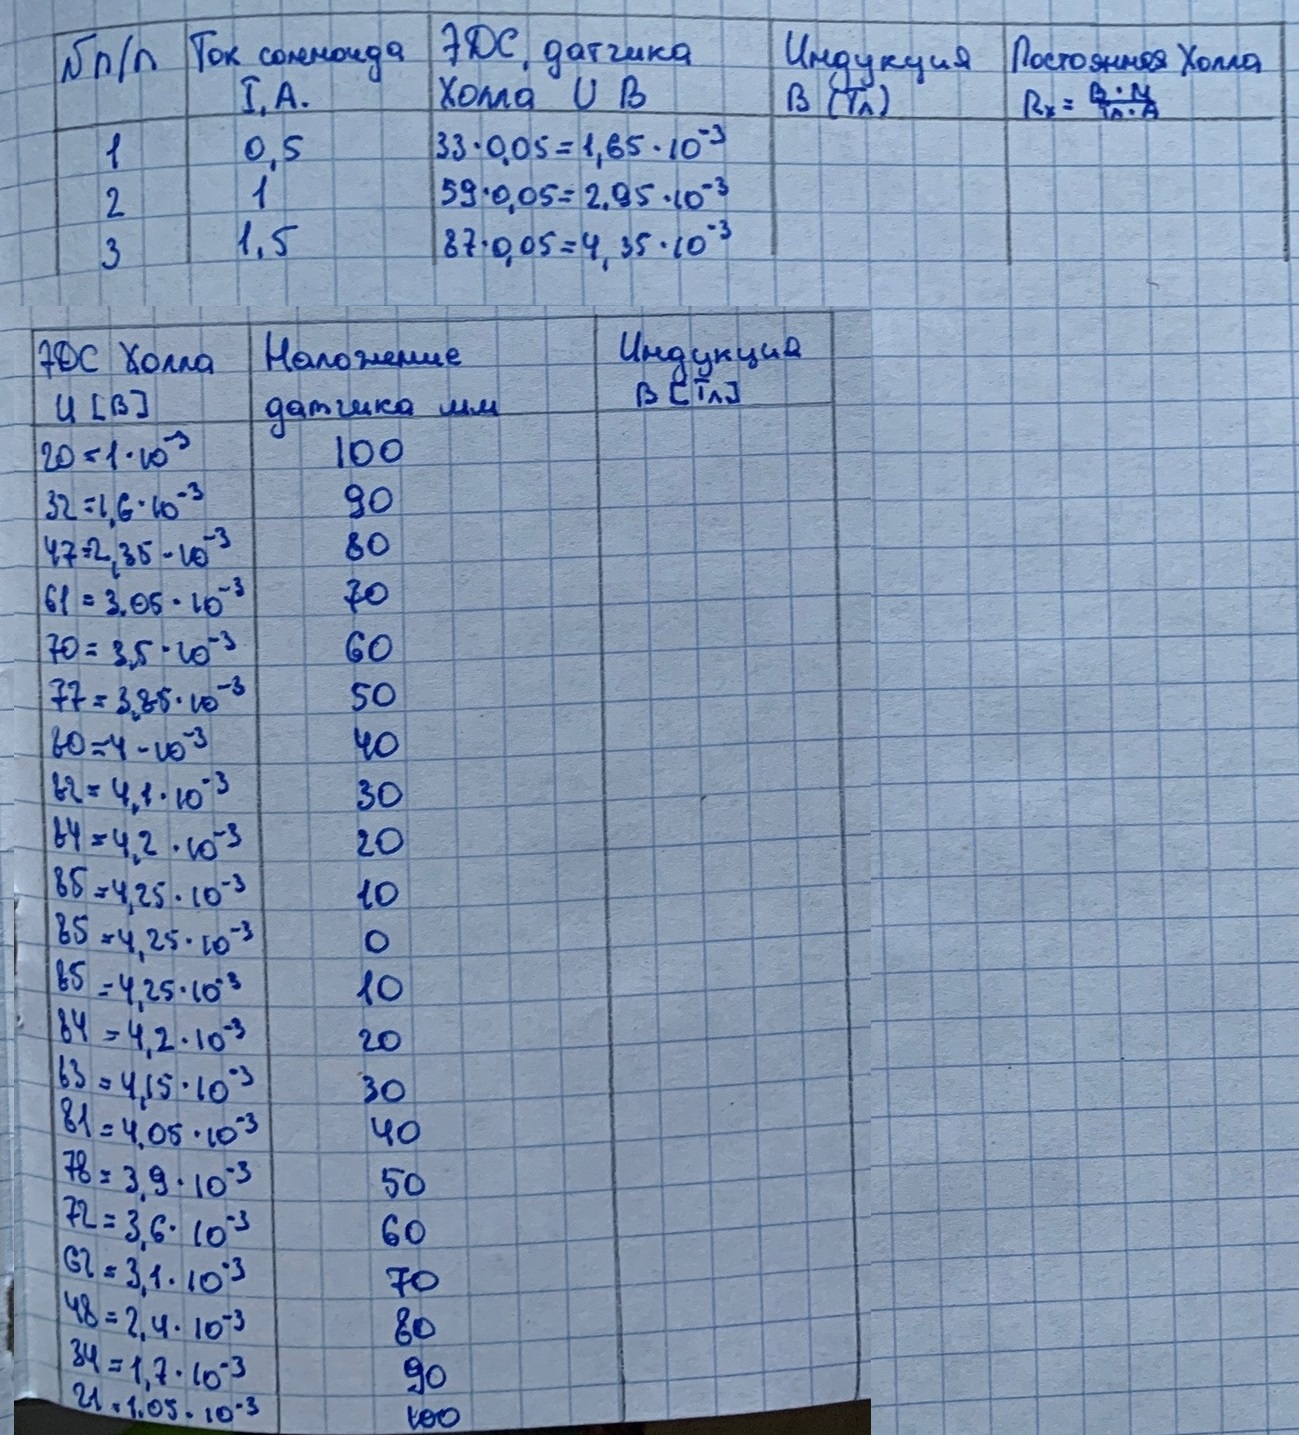 №п/п Ток соленоида I, А. ЭДС, датчика Холла U В Индукция В (Тл) Постоянная Холла Rх = В·М/Тл·А
1 0,5 33·0,05=1,65·10⁻³
2 1 59·0,05=2.95·10⁻³
3 1,5 87·0,05=4,35·10⁻³
ЭДС Холла U [В] Наложение датчика мм Индукция В [Тл]
20=1·10⁻³ 100
32=1,6·10⁻³ 90
47=2,35-10⁻³ 80
61=3.05·10⁻³ 70
70=3,5·10⁻³ 60
77=3,85·10⁻³ 50
80=4-10⁻³ 40
82=4,1·10⁻³ 30
84=4,2·10⁻³ 20
85=4,25·10⁻³ 10
85=4,25·10⁻³ 0
85=4,25·10⁻³ 10
84=4,2·10⁻³ 20
83=4,15·10⁻³ 30
81=4.05·10⁻³ 40
78=3,9·10⁻³ 50
72=3,6·10⁻³ 60
62=3,1·10⁻³ 70
48=2,4·10⁻³ 80
34=1,7·10⁻³ 90
21=1.05·10⁻³ 100